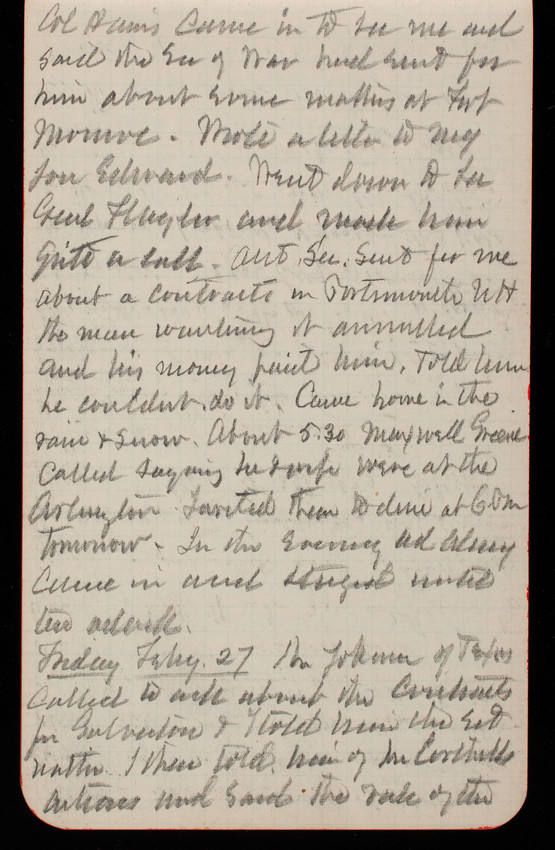 Col Hains came in to see me and
said the Sec of War had sent for
him about some matters at Fort
Monroe. Wrote a letter to my
son Edward. Went down to see
Genl Flagler and made him
quite a call. Asst. Sec. sent for me
about a contracts in Portsmouth NH
the man wanting it annulled
and his money paid him. Told him
he couldnt do it. Came home in the
rain & snow. About 5:30 Maxwell Greene
called saying he & wife were at the
Arlington Invited them to dine at 6 Pm
tomorrow. In the evening
came in and stayed until
ten oclock.
Friday Feby. 27 of Texas
called to ask about the contracts
for Galveston & I told him the
matter I then told him of Mr Corthells
actions and said the rule of the